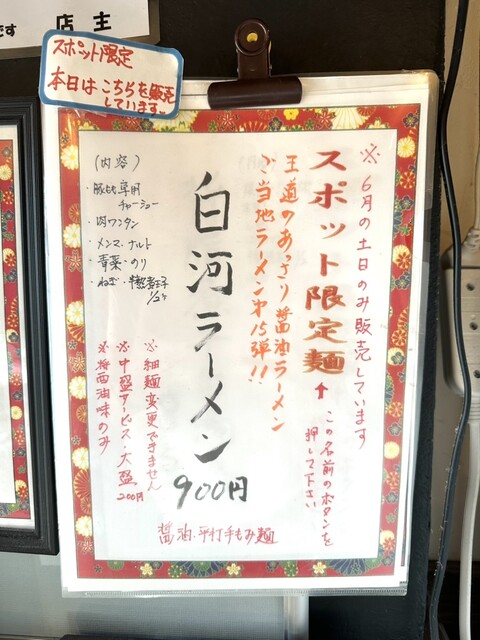 店主
です
スポット限定
本日はこちらを販売
しています
※6月の土日のみ販売しています
スポット限定麺
↑この名前のボタンを
押して下さい
王道のあっさり醤油ラーメン
ご当地ラーメン第15弾!!
白河ラーメン
900円
(内容)
・豚もも専用
チャーシュー
・肉ワンタン
・メンマ・ナルト
・青菜・のり
・ねぎ・半熟煮玉子
1/2ケ
※細麺変更できません
※中盛サービス・大盛
200円
※醤油味のみ
醤油・平打手もみ麺